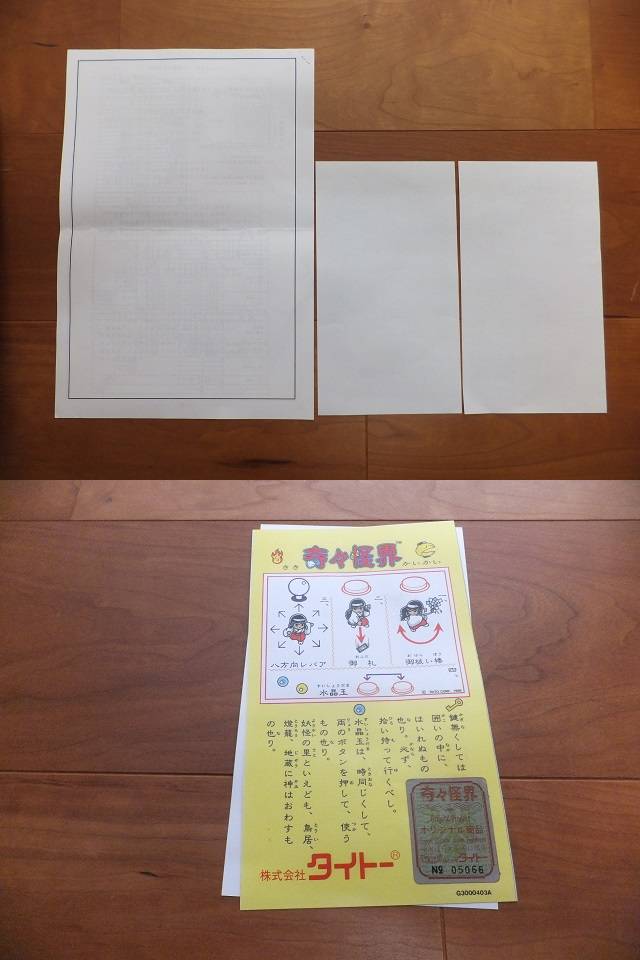 奇々怪界
きき
かいかい
一、
八方向レバア
二、
おふだ
御札
三、
おはら ぼう
御祓い棒
四、
すいしょうだま
水晶玉
© TAITO CORP. 1986
鍵無くしては
囲いの中に、
はいれぬもの
也り。必ず、
拾い持って行くべし。
水晶玉は、時同じくして、
両のボタンを押して、使う
もの也り。
妖怪の里といえども、鳥居、
燈籠、地蔵に神はおわすも
の也り。
株式会社 タイトー®
奇々怪界
オリジナル商品
タイトー
No 05066
G3000403A